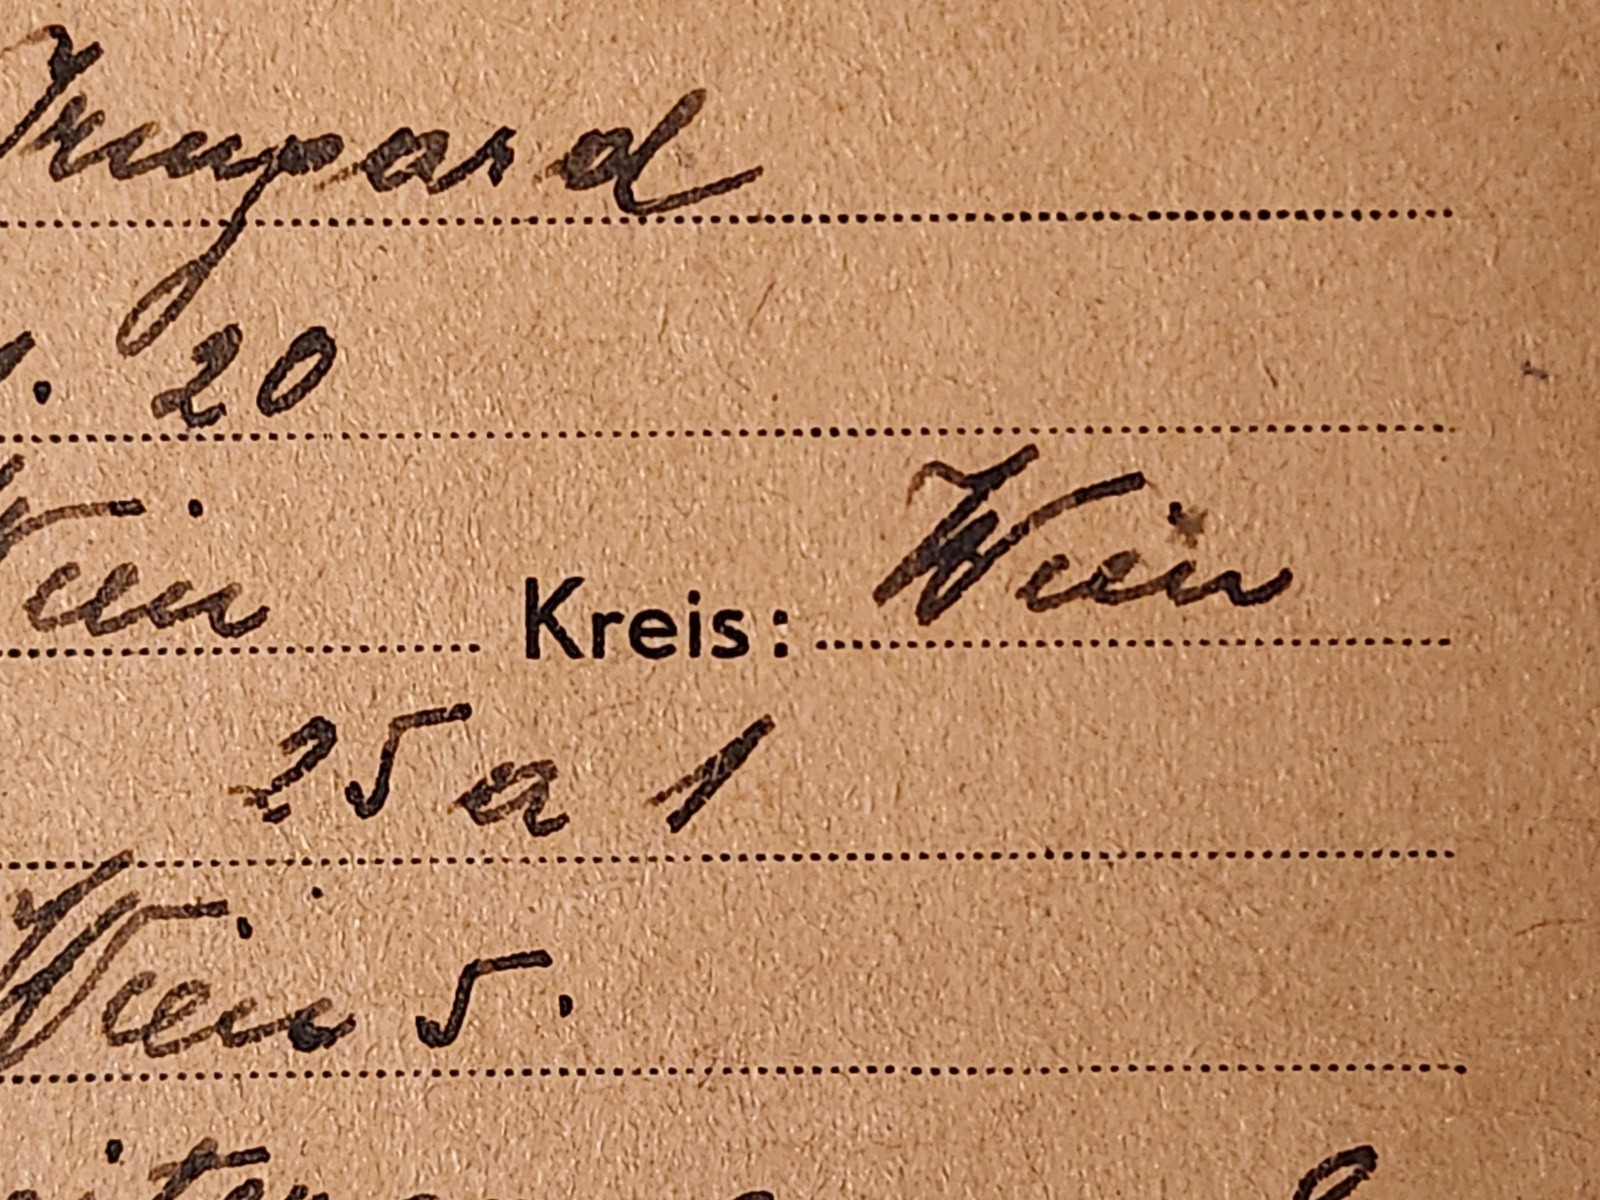 Irmgard
. 20
Wien Kreis: Wien
25 a 1
Wien 5.